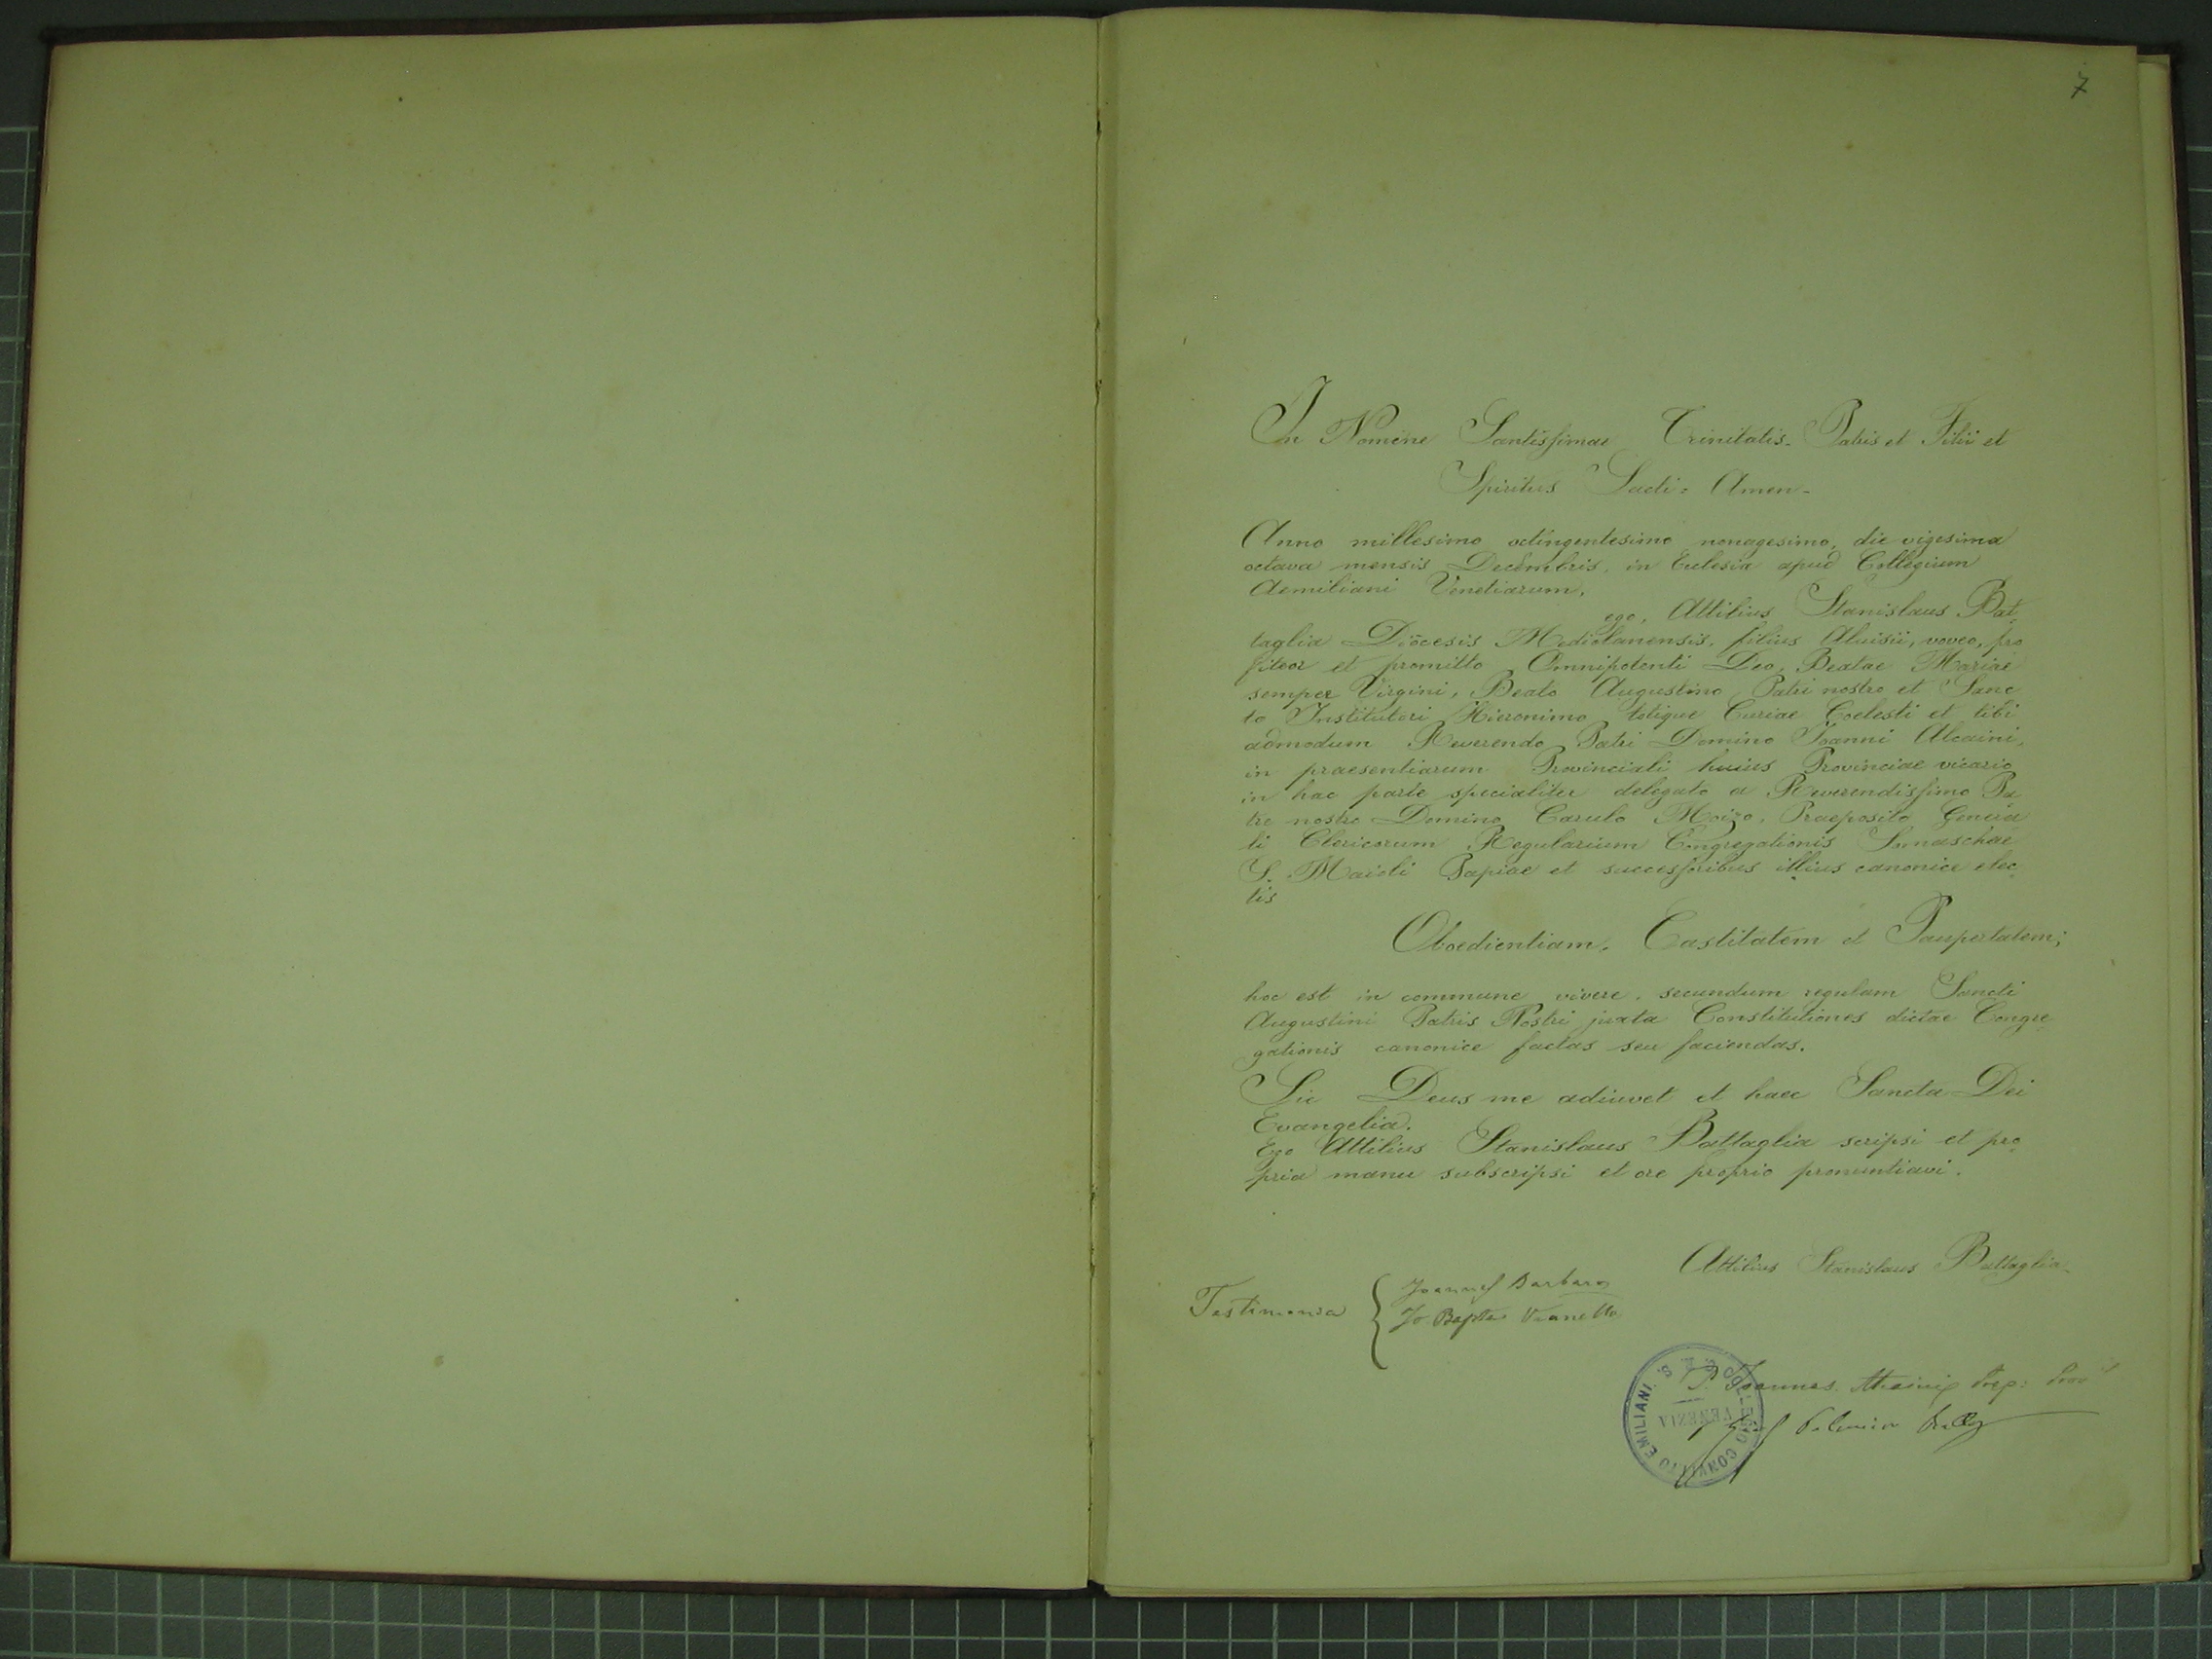 7
In Nomine Santissimae Trinitatis. Patris et Filii et
Spiritus Sacti = Amen.
Anno millesimo octingentesimo nonagesimo, die vigesima
octava mensis Decembris, in Eclesia apud Collegium
Aemiliani Venetiarum,
ego, Attilius Stanislaus Bat
taglia Diöcesis Mediolanensis, filius Aluisii, voveo, pro
fiteor et promitto Omnipotenti Deo, Beatae Mariae
semper Virgini, Beato Augustino Patri nostro et Sanc
to Institutori Hieronimo totique Curiae Coelesti et tibi
admodum Reverendo Patri Domino Joanni Alcaini,
in praesentiarum Provinciali huius Provinciae vicario
in hac parte specialiter delegato a Reverendissimo Pa
tre nostro Domino Carulo Moizo, Praeposito Genera
li Clericorum Regularium Congregationis Somaschae
S. Maioli Papiae et successoribus illius canonice elec
tis
Oboedientiam, Castitatem et Paupertatem;
hoc est in commune vivere, secundum regulam Sancti
Augustini Patris Nostri juxta Constitutiones dictae Congre
gationis canonice factas seu faciendas.
Sic Deus me adiuvet et haec Sancta Dei
Evangelia.
Ego Attilius Stanislaus Battaglia scripsi et pro
pria manu subscripsi et ore proprio pronuntiavi.
Attilius Stanislaus Battaglia
Testimonia { Joannes Barbaro
Jo. Bapta Vianello
P. Joannes Alcaini Prep: Prov
COLLEGIO CONVITTO EMILIANI. S
VENEZIA